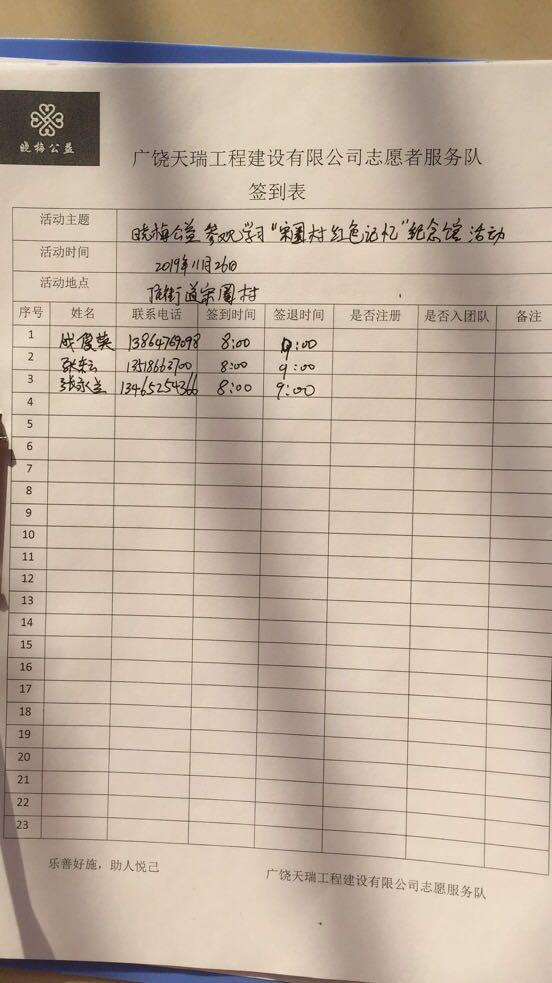 晓梅公益
广饶天瑞工程建设有限公司志愿者服务队
签到表
活动主题 晓梅公益参观学习“宋圈村红色记忆”纪念馆活动
活动时间 2019年11月26日
活动地点 街道宋圈村
序号 姓名 联系电话 签到时间 签退时间 是否注册 是否入团队 备注
1 成俊英 13864769098 8:00 9:00
2 张云 8:00 9:00
3 张永兰 13465254366 8:00 9:00
4
5
6
7
8
9
10
11
12
13
14
15
16
17
18
19
20
21
22
23
乐善好施，助人悦己
广饶天瑞工程建设有限公司志愿服务队